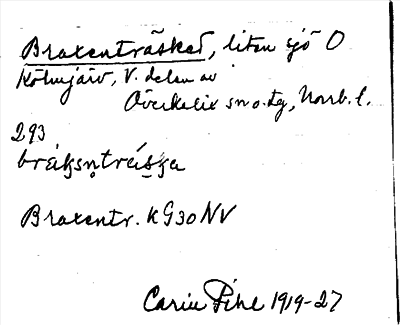 Braxenträsket, liten sjö O
Kölmjärv, V. delen av
Överkalix sn o. tg, Norrb. l.
293
Braxentr. KG30NV
Carin Pihl 1919-27